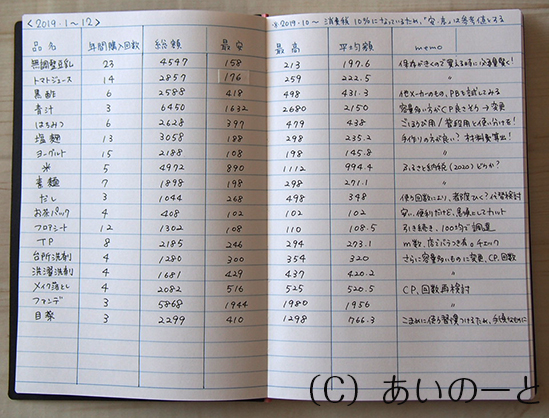 <2019.1〜12>
※2019.10〜 消費税10%になっているため、「安・高」は参考値とする
品名 年間購入回数 総額 最安 最高 平均額 memo
無調整豆乳 23 4547 158 213 197.6
トマトジュース 14 2857 176 259 222.5 〃
黒酢 6 2588 418 498 431.3 他メーカーのもの、PBを試してみる
青汁 3 6450 1632 2680 2150 容量多い方がCP良さそう→変更
はちみつ 6 2628 397 479 438 ごほうび用/普段用と使い分ける!
塩麹 13 3058 188 298 235.2 手作りの方が良い? 材料費算出!
ヨーグルト 15 2188 108 198 145.8 〃
米 5 4972 890 1112 994.4 ふるさと納税(2020)どうか?
素麺 7 1898 198 298 271.1 〃
だし 3 1044 268 498 348
お茶パック 4 408 102 102 102
フロアシート 12 1302 108 110 108.5 引き続き、100均で調達
TP 8 2185 246 294 273.1 m数、店でバラつき有。チェック
台所洗剤 4 1280 300 354 320 さらに容量多いものに変更、CP、回数
洗濯洗剤 4 1681 429 437 420.2 〃
メイク落とし 4 2082 516 525 520.5 CP、回数再検討
ファンデ 3 5868 1944 1980 1956 〃
目薬 3 2299 410 1298 766.3
(C) あいのーと